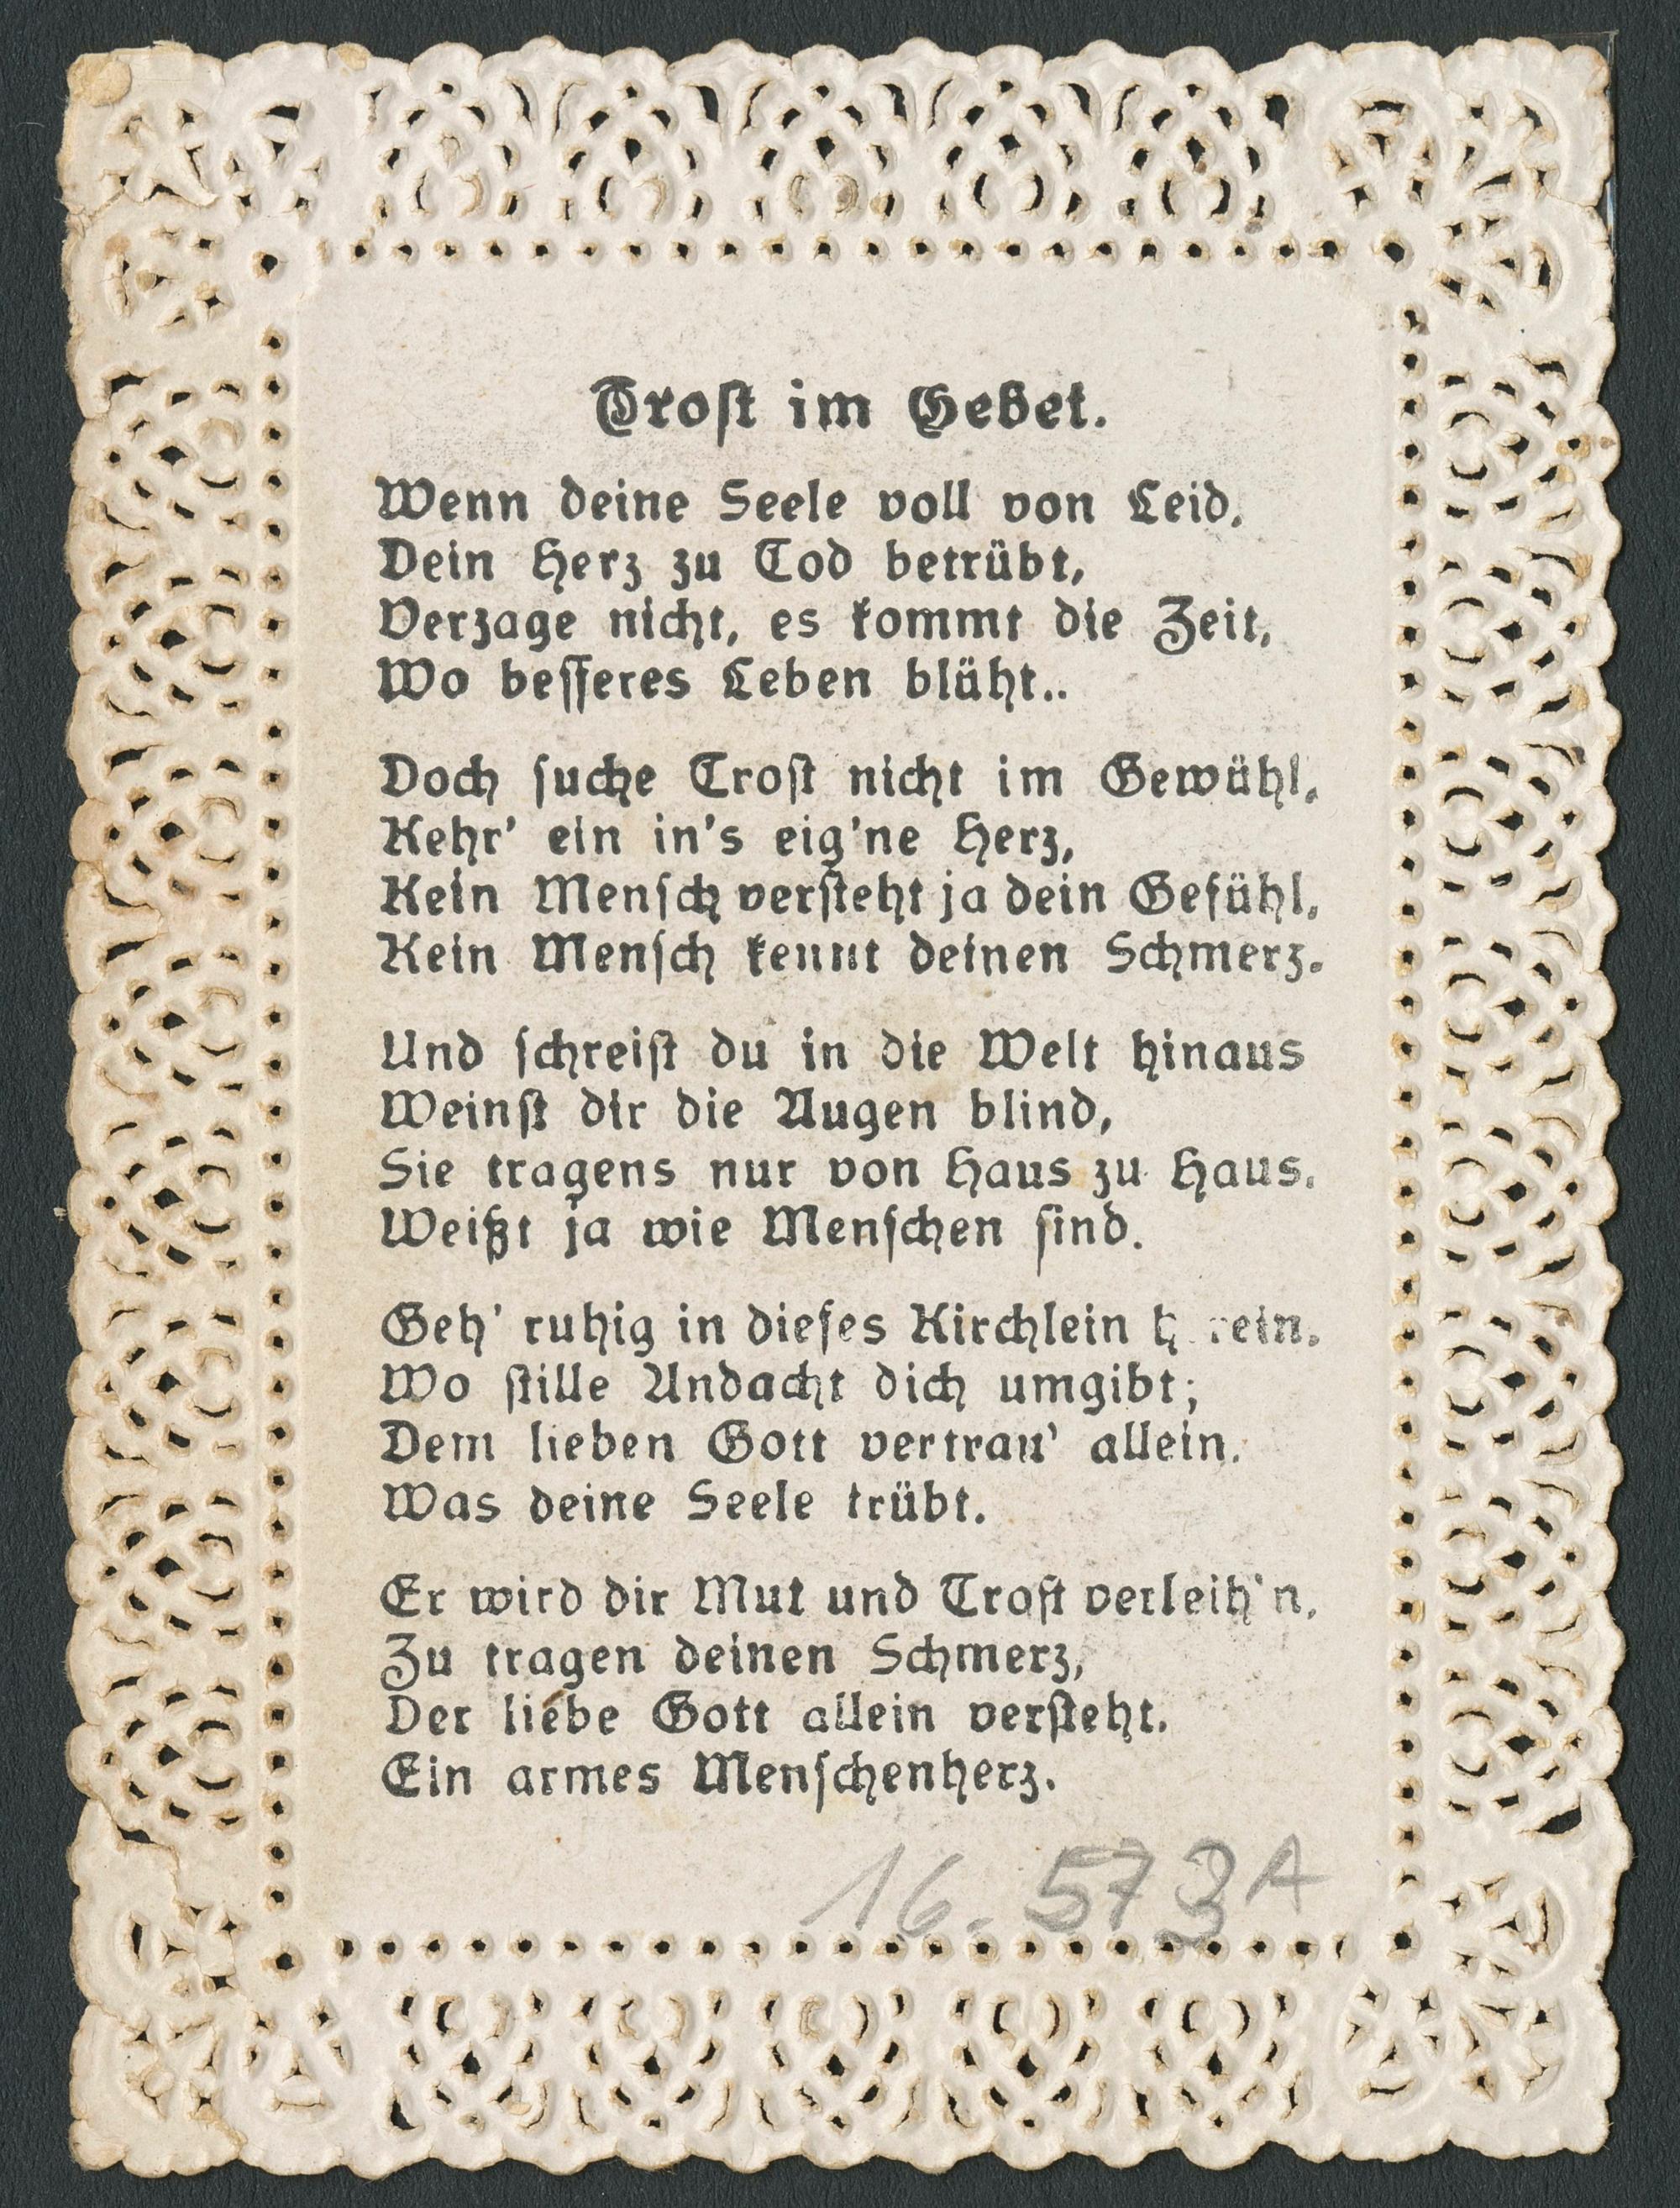 Trost im Gebet.
Wenn deine Seele voll von Leid,
Dein Herz zu Tod betrübt,
Verzage nicht, es kommt die Zeit,
Wo besseres Leben blüht..
Doch suche Trost nicht im Gewühl,
Kehr' ein in's eig'ne Herz,
Kein Mensch versteht ja dein Gefühl,
Kein Mensch kennt deinen Schmerz.
Und schreist du in die Welt hinaus
Weinst dir die Augen blind,
Sie tragens nur von Haus zu Haus.
Weißt ja wie Menschen sind.
Geh' ruhig in dieses Kirchlein h rein.
Wo stille Andacht dich umgibt;
Dem lieben Gott vertrau' allein.
Was deine Seele trübt.
Er wird dir Mut und Trost verleih'n,
Zu tragen deinen Schmerz,
Der liebe Gott allein versteht.
Ein armes Menschenherz.
16. 573 A